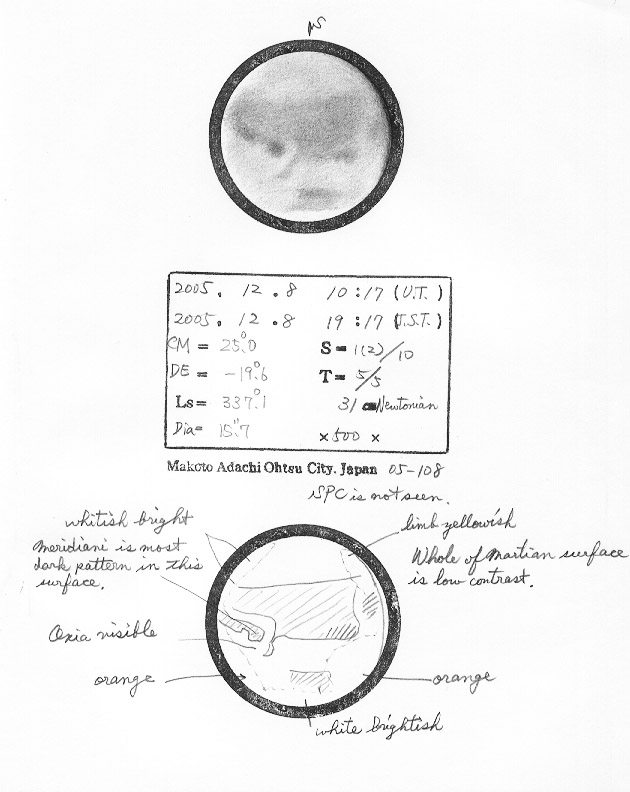 S
2005. 12. 8 10:17 (U.T.)
2005. 12. 8 19:17 (J.S.T.)
CM = 25.°0 S = 1(2)/10
DE = -19.°6 T = 5/5
Ls = 337.°1 31 cm Newtonian
Dia = 15."7 ×500 ×
Makoto Adachi Ohtsu City. Japan 05-108
SPC is not seen.
whitish bright
limb yellowish
Meridiani is most
dark pattern in this
surface.
Whole of Martian surface
is low contrast.
Oxia visible
orange
orange
white brightish